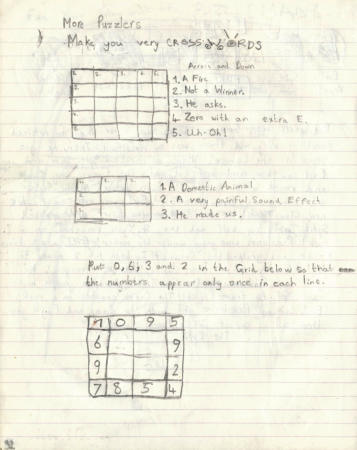 More Puzzlers
Make you very CROSSWORDS
Across and Down
1. A Fig.
2. Not a Winner.
3. He asks.
4. Zero with an extra E.
5. Uh-Oh!
1. A Domestic Animal
2. A very painful Sound Effect
3. He made us.
Put 0, 6, 3 and 2 in the Grid below so that
the numbers appear only once in each line.
7 0 9 5
6 9
9 2
7 8 5 4